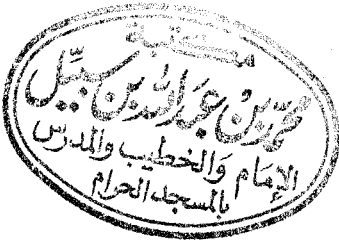 مكتبة
محمد بن عبد الله بن سبيل
الإمام والخطيب والمدرس
بالمسجد الحرام